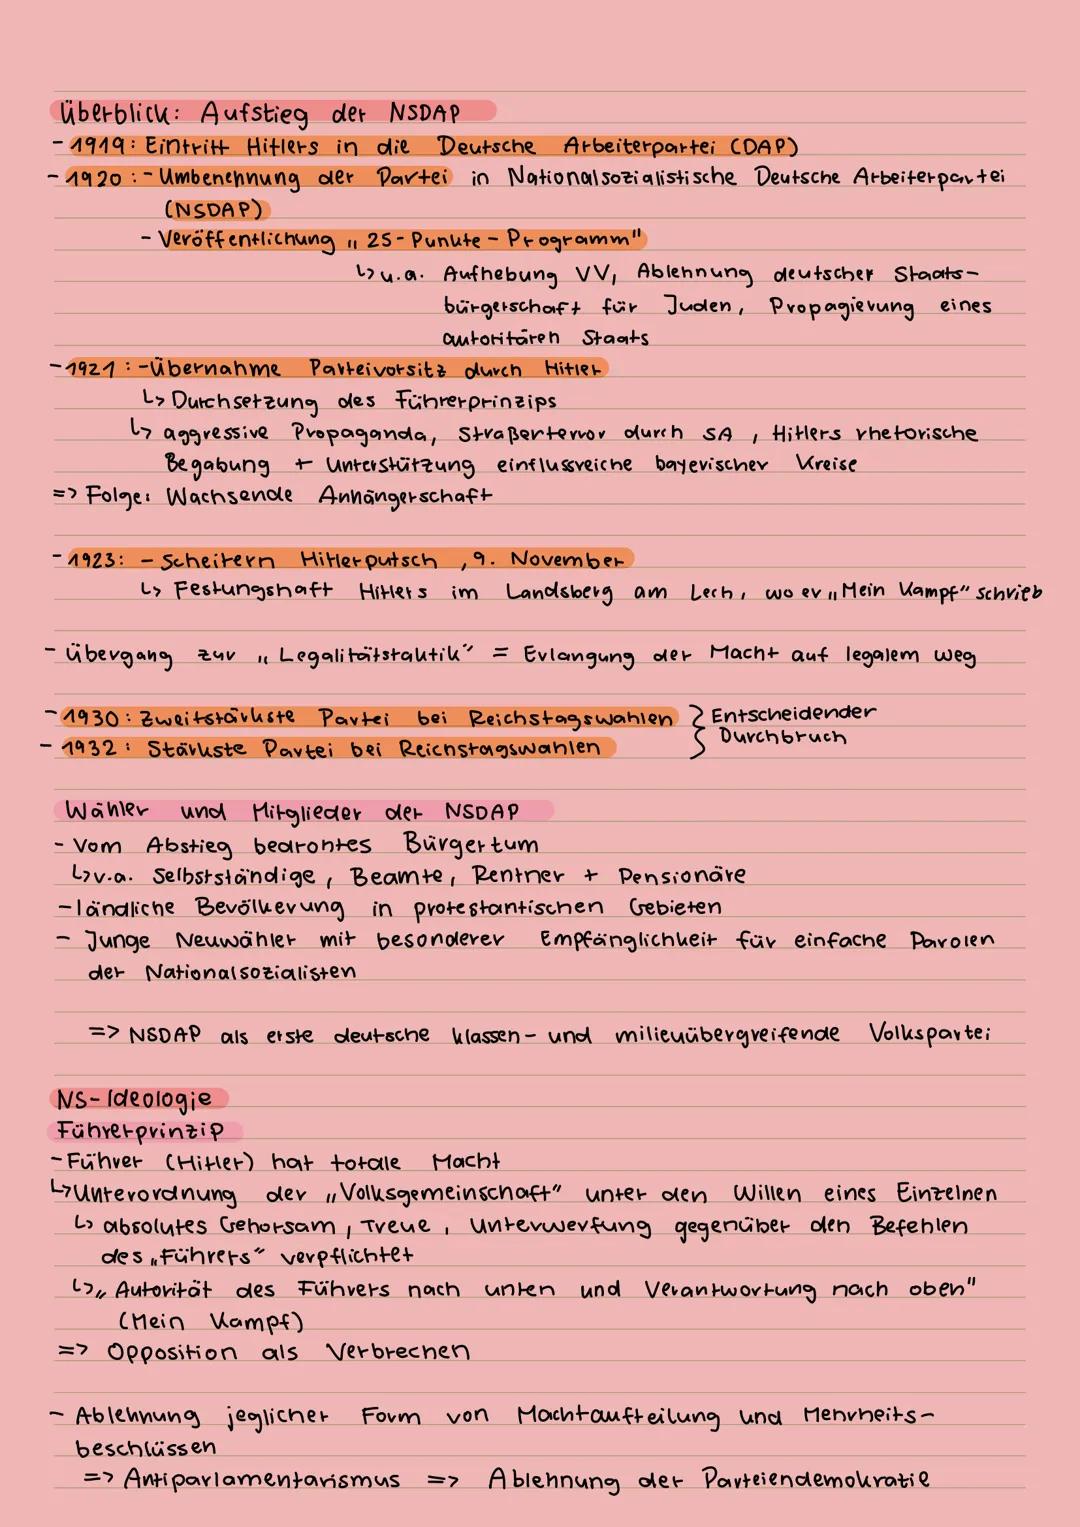 Überblick: Aufstieg der NSDAP
- 1919: Eintritt Hitlers in die Deutsche Arbeiterpartei (DAP)
- 1920: - Umbenennung der Partei in Nationalsozialistische Deutsche Arbeiterpartei
(NSDAP)
- Veröffentlichung „25-Punkte-Programm"
↳ u.a. Aufhebung VV, Ablehnung deutscher Staats-
bürgerschaft für Juden, Propagierung eines
autoritären Staats
- 1921: - Übernahme Parteivorsitz durch Hitler
↳ Durchsetzung des Führerprinzips
↳ aggressive Propaganda, Straßenterror durch SA, Hitlers rhetorische
Begabung + Unterstützung einflussreiche bayerischer Kreise
=> Folge: Wachsende Anhängerschaft
- 1923: - Scheitern Hitlerputsch, 9. November
↳ Festungshaft Hitlers im Landsberg am Lech, wo er „Mein Kampf" schrieb
- Übergang zur „Legalitätstaktik" = Erlangung der Macht auf legalem weg
- 1930: Zweitstärkste Partei bei Reichstagswahlen } Entscheidender
- 1932: Stärkste Partei bei Reichstagswahlen } Durchbruch
Wähler und Mitglieder der NSDAP
- Vom Abstieg bedrohtes Bürgertum
↳ v.a. Selbstständige, Beamte, Rentner + Pensionäre
- ländliche Bevölkerung in protestantischen Gebieten
- Junge Neuwähler mit besonderer Empfänglichkeit für einfache Parolen
der Nationalsozialisten
=> NSDAP als erste deutsche klassen- und milieuübergreifende Volkspartei
NS-Ideologie
Führerprinzip
- Führer (Hitler) hat totale Macht
↳ Unterordnung der „Volksgemeinschaft" unter den Willen eines Einzelnen
↳ absolutes Gehorsam, Treue, Unterwerfung gegenüber den Befehlen
des „Führers" verpflichtet
↳ „Autorität des Führers nach unten und Verantwortung nach oben"
(Mein Kampf)
=> Opposition als Verbrechen
- Ablehnung jeglicher Form von Machtaufteilung und Mehrheits-
beschlüssen
=> Antiparlamentarismus => Ablehnung der Parteiendemokratie